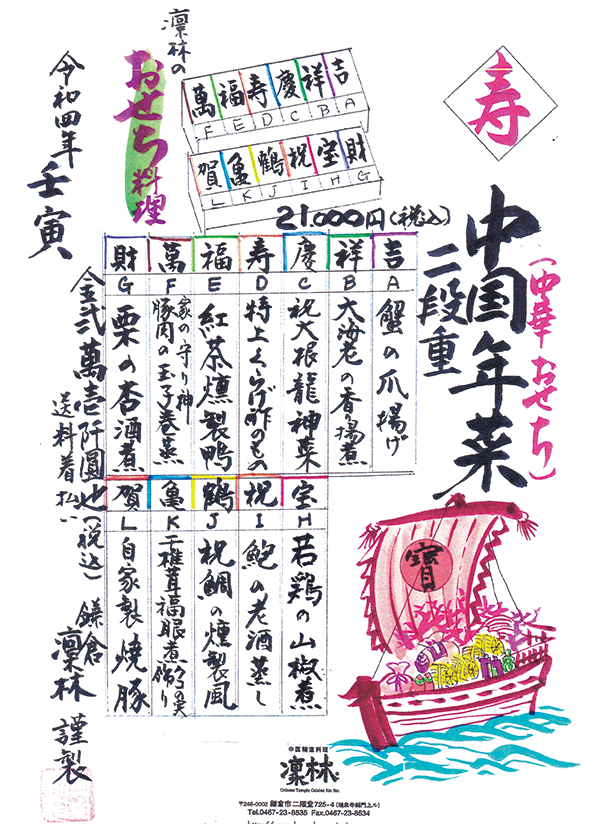 寿
(中華おせち)
中国年菜
二段重
凛林の
おせち料理
萬 福 寿 慶 祥 吉
F E D C B A
賀 亀 鶴 祝 宝 財
L K J I H G
21,000円(税込)
吉 A 蟹の爪揚げ
祥 B 大海老の香り揚煮
慶 C 祝大根龍神菜
寿 D 特上くらげ酢のもの
福 E 紅茶燻製鴨
萬 F 家の守り神 豚肉の玉子巻蒸
財 G 栗の杏酒煮
宝 H 若鶏の山椒煮
祝 I 鮑の老酒蒸し
鶴 J 祝鯛の燻製風
亀 K 干椎茸福眼煮
賀 L 自家製焼豚
令和四年 壬寅
金弐萬壱阡圓也(税込)
送料着払い
鎌倉
凛林 謹製
寶
中国精進料理
凛林
Chinese Temple Cuisine Rin Rin
〒248-0002 鎌倉市二階堂725-4(瑞泉寺総門上ル)
Tel.0467-23-8535 Fax.0467-23-8534